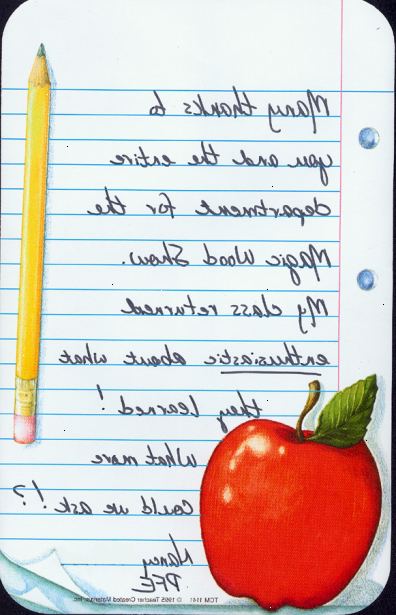 Many thanks to
you and the entire
department for the
Magic Wood Show.
My class returned
enthusiastic about what
they learned!
What more
could we ask?!
Nancy
PFE
TCM 1141 © 1995 Teacher Created Materials, Inc.